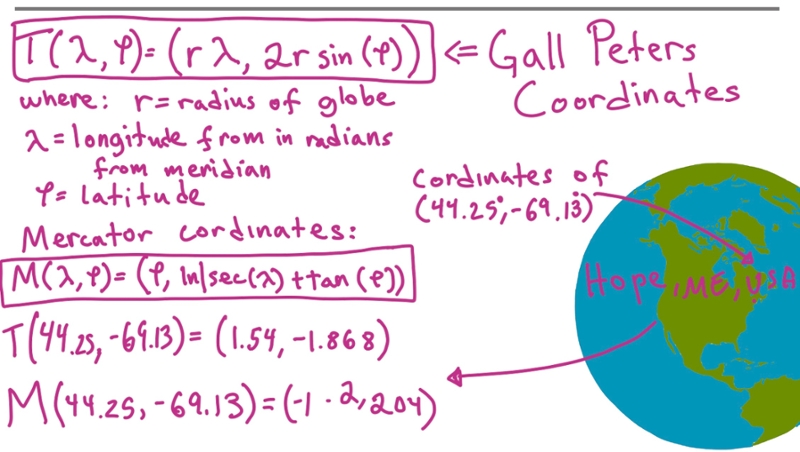 T(λ, φ) = (r λ, 2r sin(φ)) ⇐ Gall Peters
Coordinates
where: r = radius of globe
λ = longitude from in radians
from meridian
φ = latitude
cordinates of
(44.25°, -69.13°)
Mercator cordinates:
M(λ, φ) = (φ, ln|sec(λ) + tan(φ))
Hope, ME, USA
T(44.25, -69.13) = (1.54, -1.868)
M(44.25, -69.13) = (-1 · 2, 204)